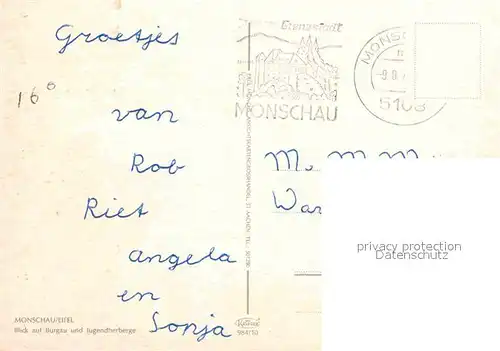 Groetjes
16°
van
Rob
Riet
angela
en
Sonja
MONSCHAU/EIFEL
Blick auf Burgau und Jugendherberge
Grenzstadt
MONSCHAU
MONS
5108
984/10
privacy protection
Datenschutz